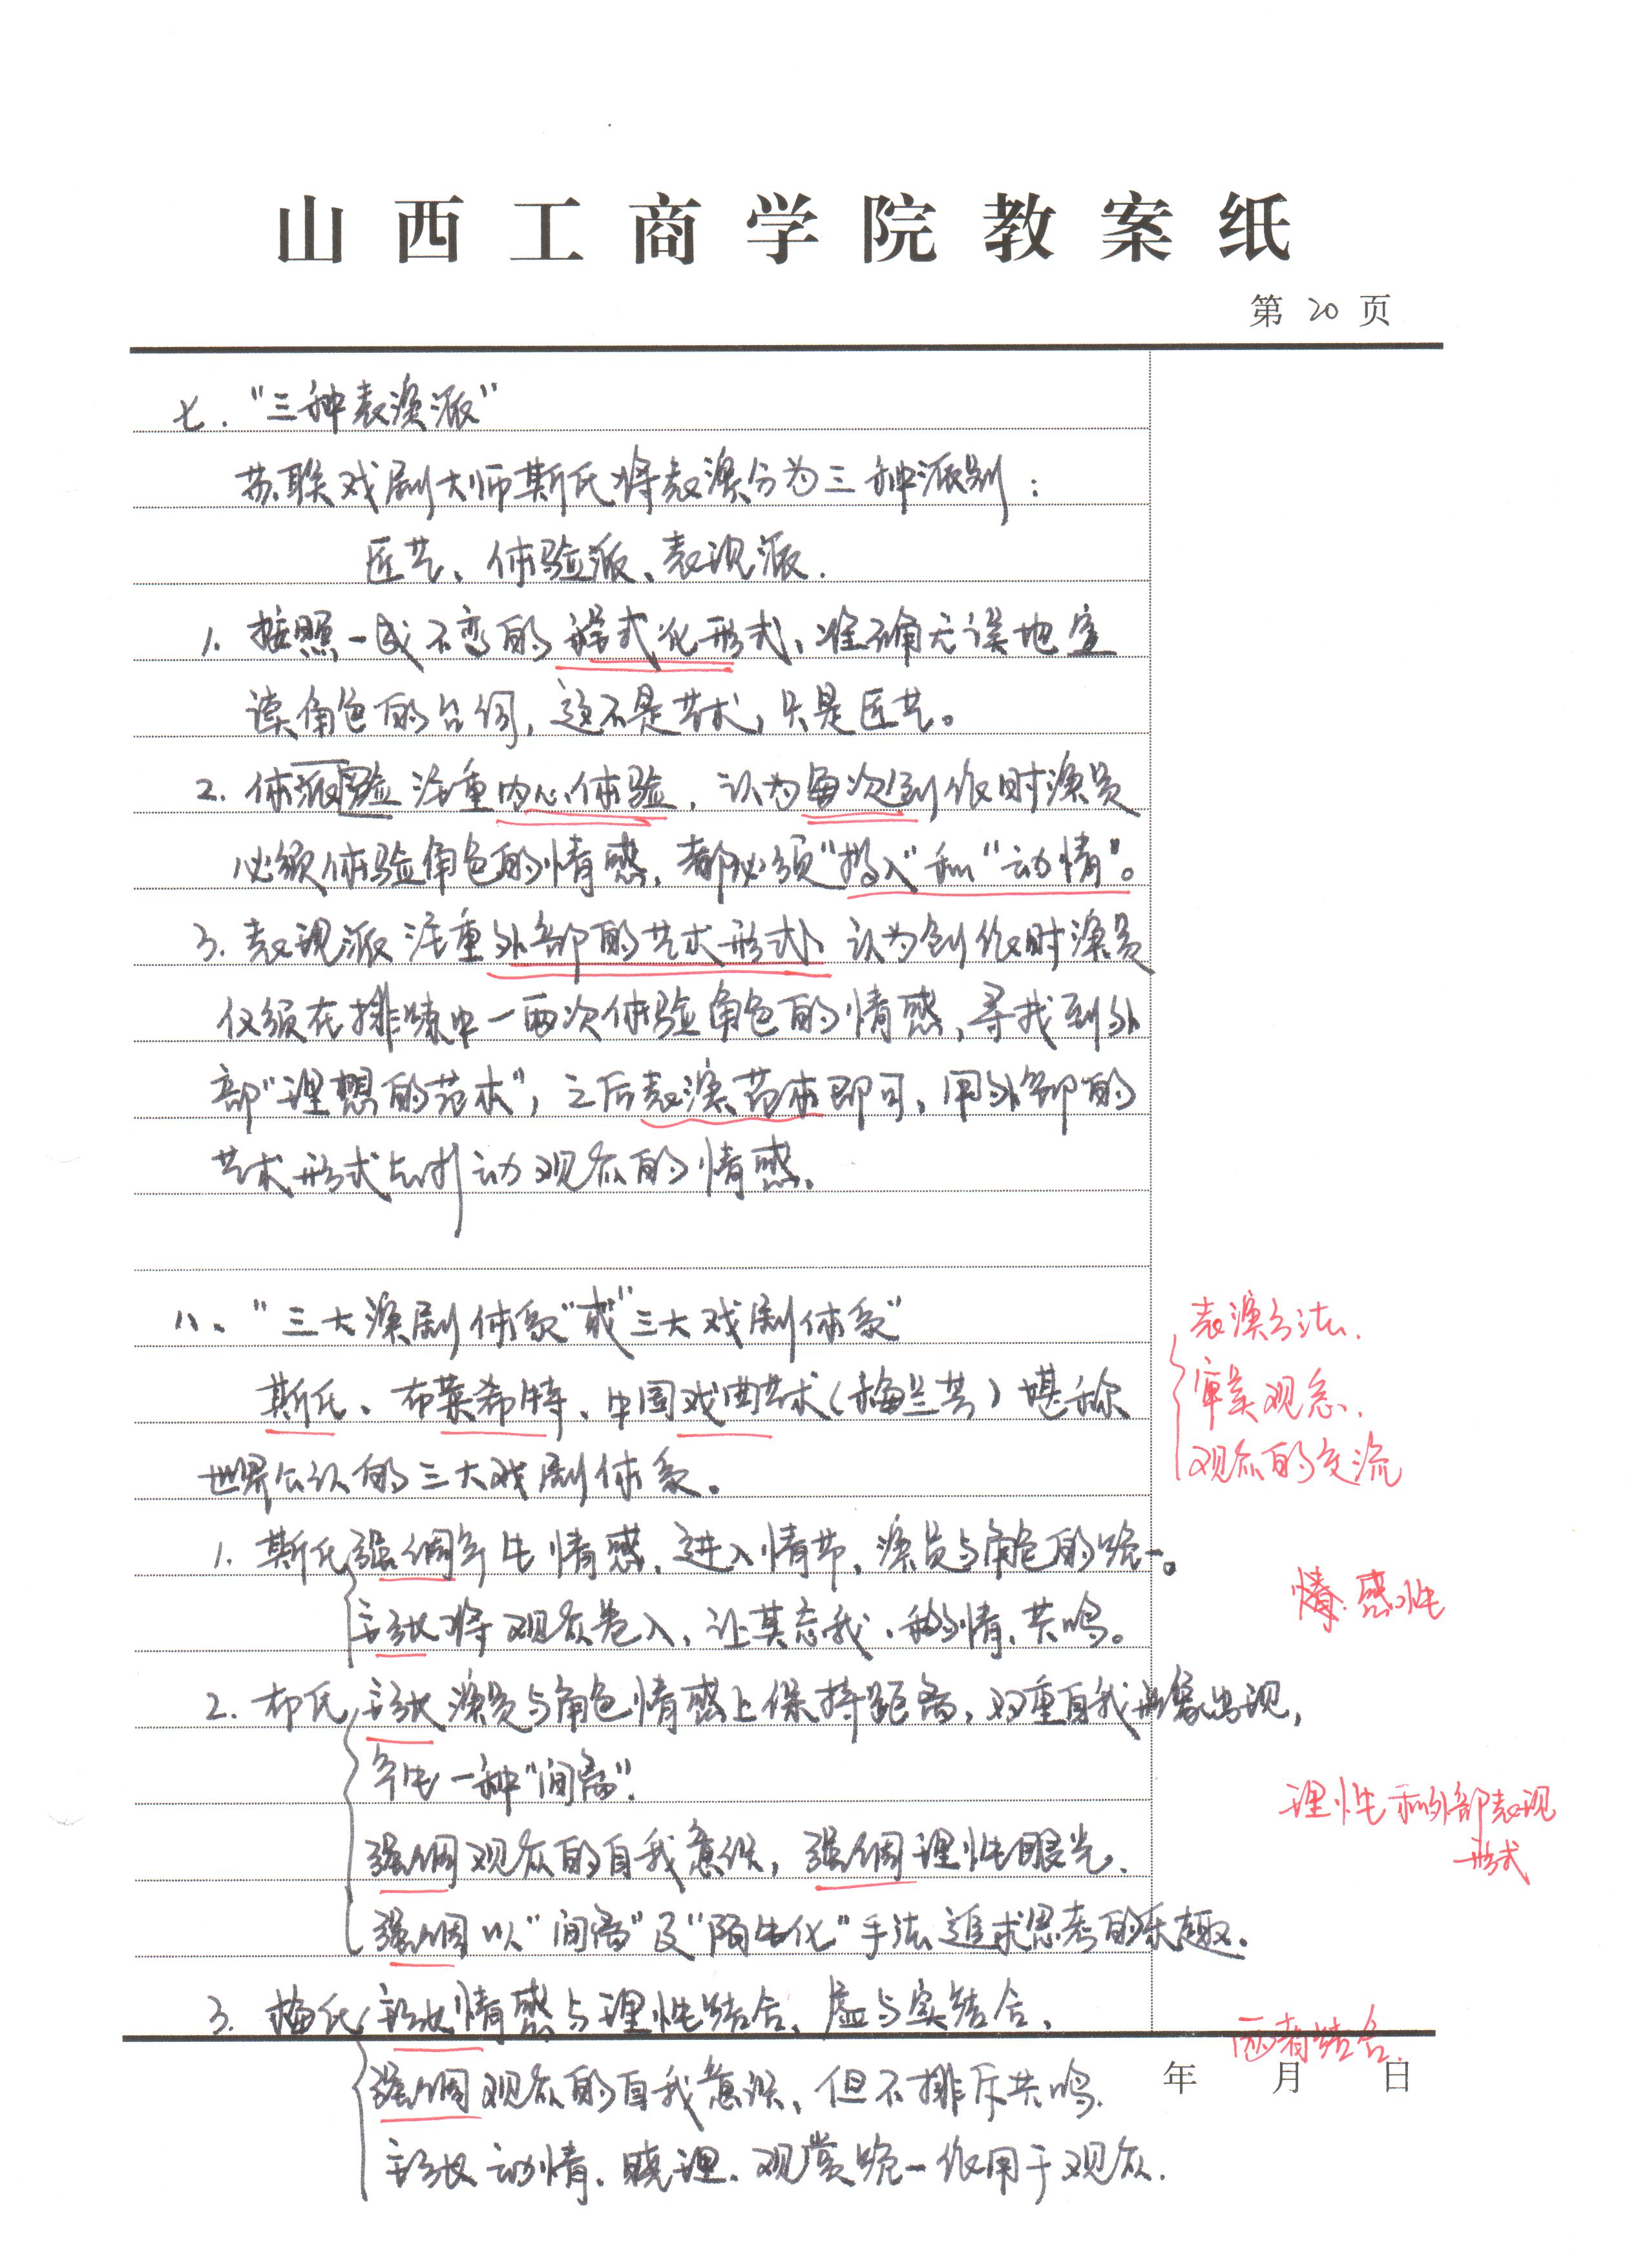 山西工商学院教案纸
第 20 页
七."三种表演派"
苏联戏剧大师斯氏将表演分为三种派别：
匠艺、体验派、表现派.
1. 按照一成不变的程式化形式、准确无误地宣
读角色的台词，这不是艺术，只是匠艺。
2. 体验派注重内心体验，认为每次创作时演员
必须体验角色的情感，都必须"投入"和"动情"。
3. 表现派注重外部的艺术形式，认为创作时演员
仅须在排练中一两次体验角色的情感，寻找到外
部"理想的范本"，之后表演范本即可，用外部的
艺术形式去引动观众的情感.
八、"三大演剧体系"或"三大戏剧体系"
表演方法.
审美观念.
观众的交流
斯氏、布莱希特、中国戏曲艺术(梅兰芳)堪称
世界公认的三大戏剧体系。
1. 斯氏强调产生情感，进入情节，演员与角色的统一。
主张将观众卷入，让其忘我、移情、共鸣。
情.感性
2. 布氏主张演员与角色情感上保持距离，双重自我形象出现，
产生一种"间离".
强调观众的自我意识，强调理性眼光.
理性和外部表现
形式
强调以"间离"及"陌生化"手法追求思考的乐趣.
3. 梅氏主张情感与理性结合、虚与实结合，
两者结合.
强调观众的自我意识，但不排斥共鸣.
主张动情、晓理、观赏统一作用于观众.
年 月 日